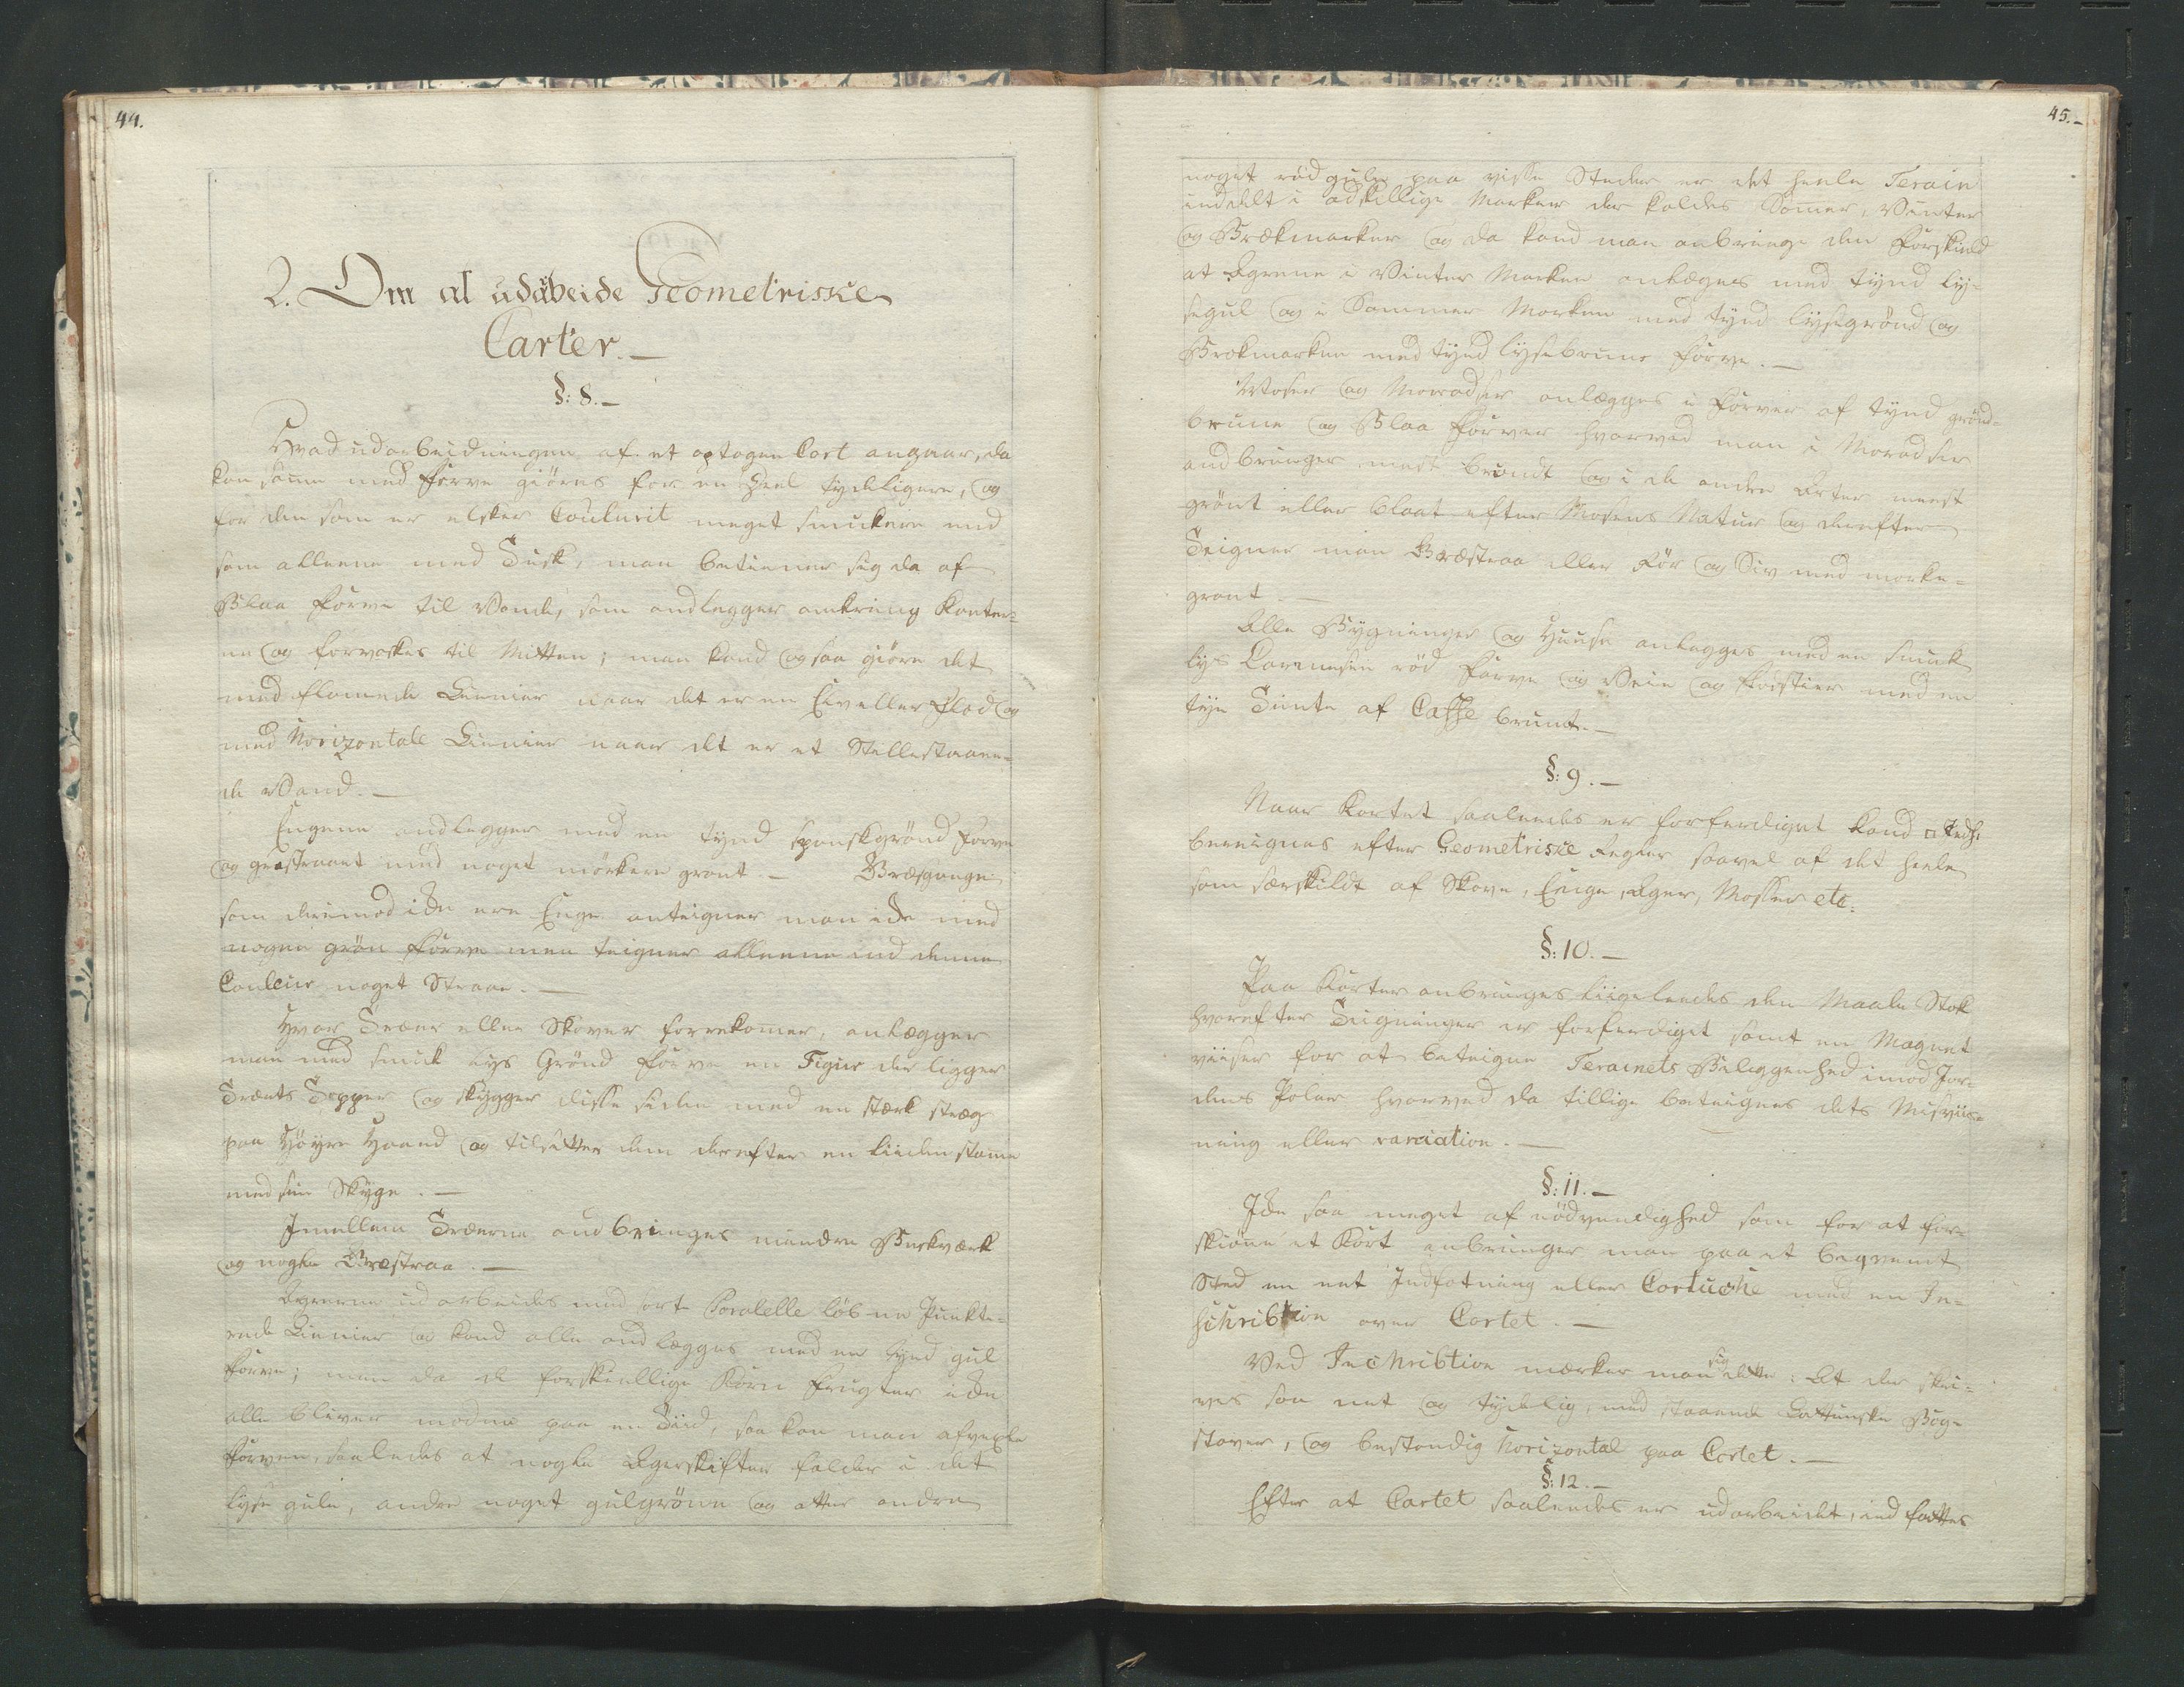 44.
2. Om at udarbeide Geometriske
Carter. —
§: 8. —
Hvad udarbeidningen af et optagen Cart angaaer, da
kan samme med Farve giøres for en Heel tydeligere, og
for den som er elsker Coulurit meget smukkere end
som alleene med Tusk, man betiener sig da af
Blaa Farve til Vande, som andlegger omkring Kanter-
ne og forvaskes til Mitten; man kand ogsaa giøre det
med flamede Linnier naar det er en Elv eller Flod og
med Horizontale Linnier naar det er et Stillestaaen-
de Vand. —
Engene andlegges med en tynd Spanskgrønd Farve
og græstraaet med noget mörkere grønt. — Græsgange
som derimod ikke ere Enge anteigner man ikke med
nogen grøn Farve men teigner alleene med denne
Couleur noget Straae. —
Hvor Træer eller Skover forrekommer, anlegger
man med smuk lys Grönd Farve en Figur der ligger
Træets Topper og skygger disse siden med en stærk stræg
paa Høyre Haand og tilsetter dem derefter en liiden stamme
med sin Skyge. —
Imellem Træerne andbringes mindre Buskværk
og nogle Græstraa. —
Agerne udarbeides med sort Paralelle løbene Punkte-
rede Linnier og kand alle andlægges med en tynd gul
Farve; men da de forskiellige Korn Frugter ikke
alle bliver modne paa en Tiid, saa kan man afvexle
Farven, saaledes at nogle Agerskifter falder i det
lyse gule, andre noget gulgrønne og atter andre
45. —
noget rødgule paa visse Steder er det heele Terain
inddelt i adskillige Marker der kaldes Sommer, Vinter
og Brakmarker og da kand man anbringe den Forskield
at Agrene i Vinter Marken anlægges med tynd ly-
segul og i Sommer Marken med tynd lysegrønd og
Brakmarken med tynd lysebrune Farve. —
Moser og Moradser anlægges i Farver af tynd grønd-
brune og Blaa Farver hvorved man i Moradser
andbringer mest brundt og i de andre Arter meest
grønt eller blaat efter Mosens Natur og derefter
Teigner man Græstraa eller Rör og Siv med mørke-
grønt. —
Alle Bygninger og Huuse anlegges med en smuk
lys Carmesin rød Farve og Veie og Fodstier med en
tyn Tinte af Caffe brunt. —
§: 9. —
Naar Kortet saaledes er forferdiget kand □ Indh:
bereignes efter Geometriske Regler saavel af det heele
som særskildt af Skove, Enge, Ager, Mosser etc:
§: 10. —
Paa Karter anbringes liigeledes den Maale Stok
hvorefter Teigninger er forferdiget samt en Magnet
viiser for at beteigne Terainets Beliggenhed imod Jor-
dens Poler hvorved da tillige beteignes dets Misviis-
ning eller varaiation. —
§: 11. —
Ikke saa meget af nødvendighed som for at for-
skiønne et Kort anbringer man paa et beqvemt
Sted en net Indfatning eller Cortuche med en In-
schribtion over Cartet. —
Ved Inchribtion mærker man sig dette: At der skri-
ves saa net og tydelig, med staaende Lattinske Bog-
staver, og bestandig horizontal paa Cartet. —
§: 12. —
Efter at Cartet saaledes er udarbeidet, indfattes